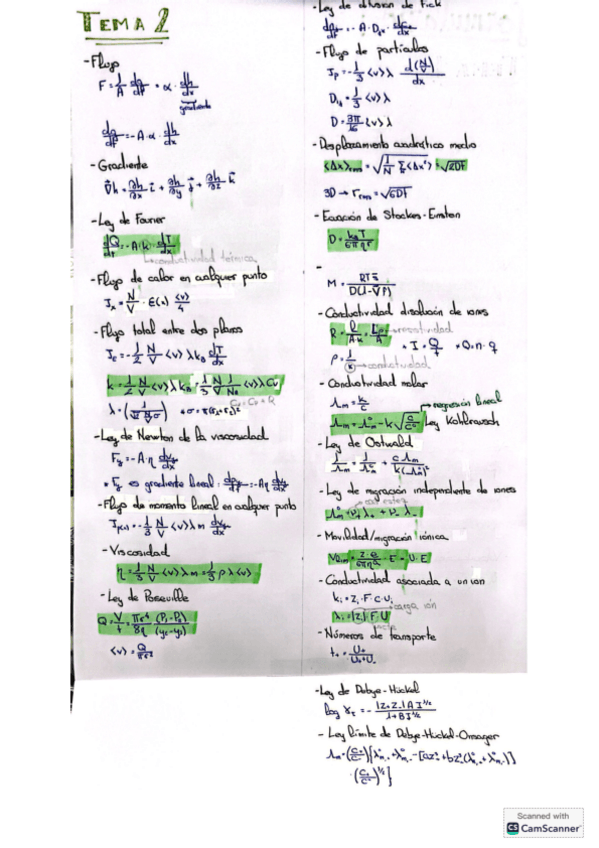 TEMA 2
- Flujo
F = 1/A dq/dt = α · dh/dx
gradiente
dq/dt = -A·α · dh/dx
- Gradiente
∇h = ∂h/∂x i + ∂h/∂y j + ∂h/∂z k
- Ley de Fourier
dQ/dt = -A·k · dT/dx
conductividad térmica
- Flujo de calor en cualquier punto
Jx = N/V · E(x) <v>/4
- Flujo total entre dos planos
Jc = -1/2 N/V <v> λ kB dT/dx
k = 1/2 N/V <v> λ kB = 1/3 N/V 1/NA <v> λ Cv
- Ley de Newton de la viscosidad
Fy = -A·η dvy/dx
* Fy es gradiente lineal: dp/dt = -Aη dvy/dx
- Flujo de momento lineal en cualquier punto
= -1/3 N/V <v> λ m dvy/dx
- Viscosidad
η = 1/3 N/V <v> λ m = 1/3 ρ λ <v>
- Ley de Poiseuille
Q = V/t = πr⁴/8η (P1-P2)/(y2-y1)
<v> = Q/πr²
- Ley de difusión de Fick
- Flujo de partículas
Jp = -1/3 <v> λ d(N/V)/dx
D = 1/3 <v> λ
D = 3π/16 <v> λ
- Desplazamiento cuadrático medio
<Δx>rms = √(1/N Σ<Δx²>) = √2Dt
3D → rrms = √6Dt
- Ecuación de Stockes-Einstein
D = kB T/6πηr
-
M = RTS/D(1-Vρ)
- Conductividad disolución de iones
R = l/Ak = lρ/A resistividad
* I = Q/t * Q = n·q
ρ = 1/k → conductividad
- Conductividad molar
Λm = k/c
regresión lineal
Λm = Λ°m - k √(c/c°) Ley Kohlrausch
- Ley de Ostwald
1/Λm = 1/Λ°m + cΛm/k(Λ°m)²
- Ley de migración independiente de iones
Λ°m = ν+ λ+ + ν- λ-
- Movilidad/migración iónica
= z·e/6πηa · E = U·E
- Conductividad asociada a un ion
ki = zi·F·c·Ui
carga ión
λi = |zi| F·U
- Números de transporte
t+ = U+/U+ + U-
- Ley de Debye-Hückel
log γ± = - |z+z-| A I^1/2 / 1+B I^1/2
- Ley límite de Debye-Hückel-Onsager